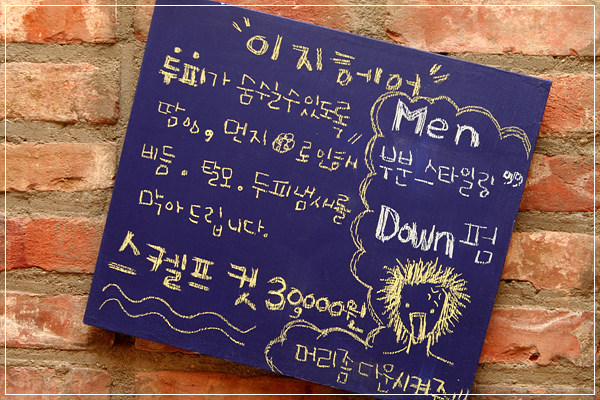 "이지헤어"
두피가 숨쉴수있도록
땀임, 먼지 로인해서
비듬. 탈모. 두피냄새를
막아드립니다.
스켈프 컷 30,000원
Men
부분스타일링
Down펌
머리좀 다운시켜줘!!!